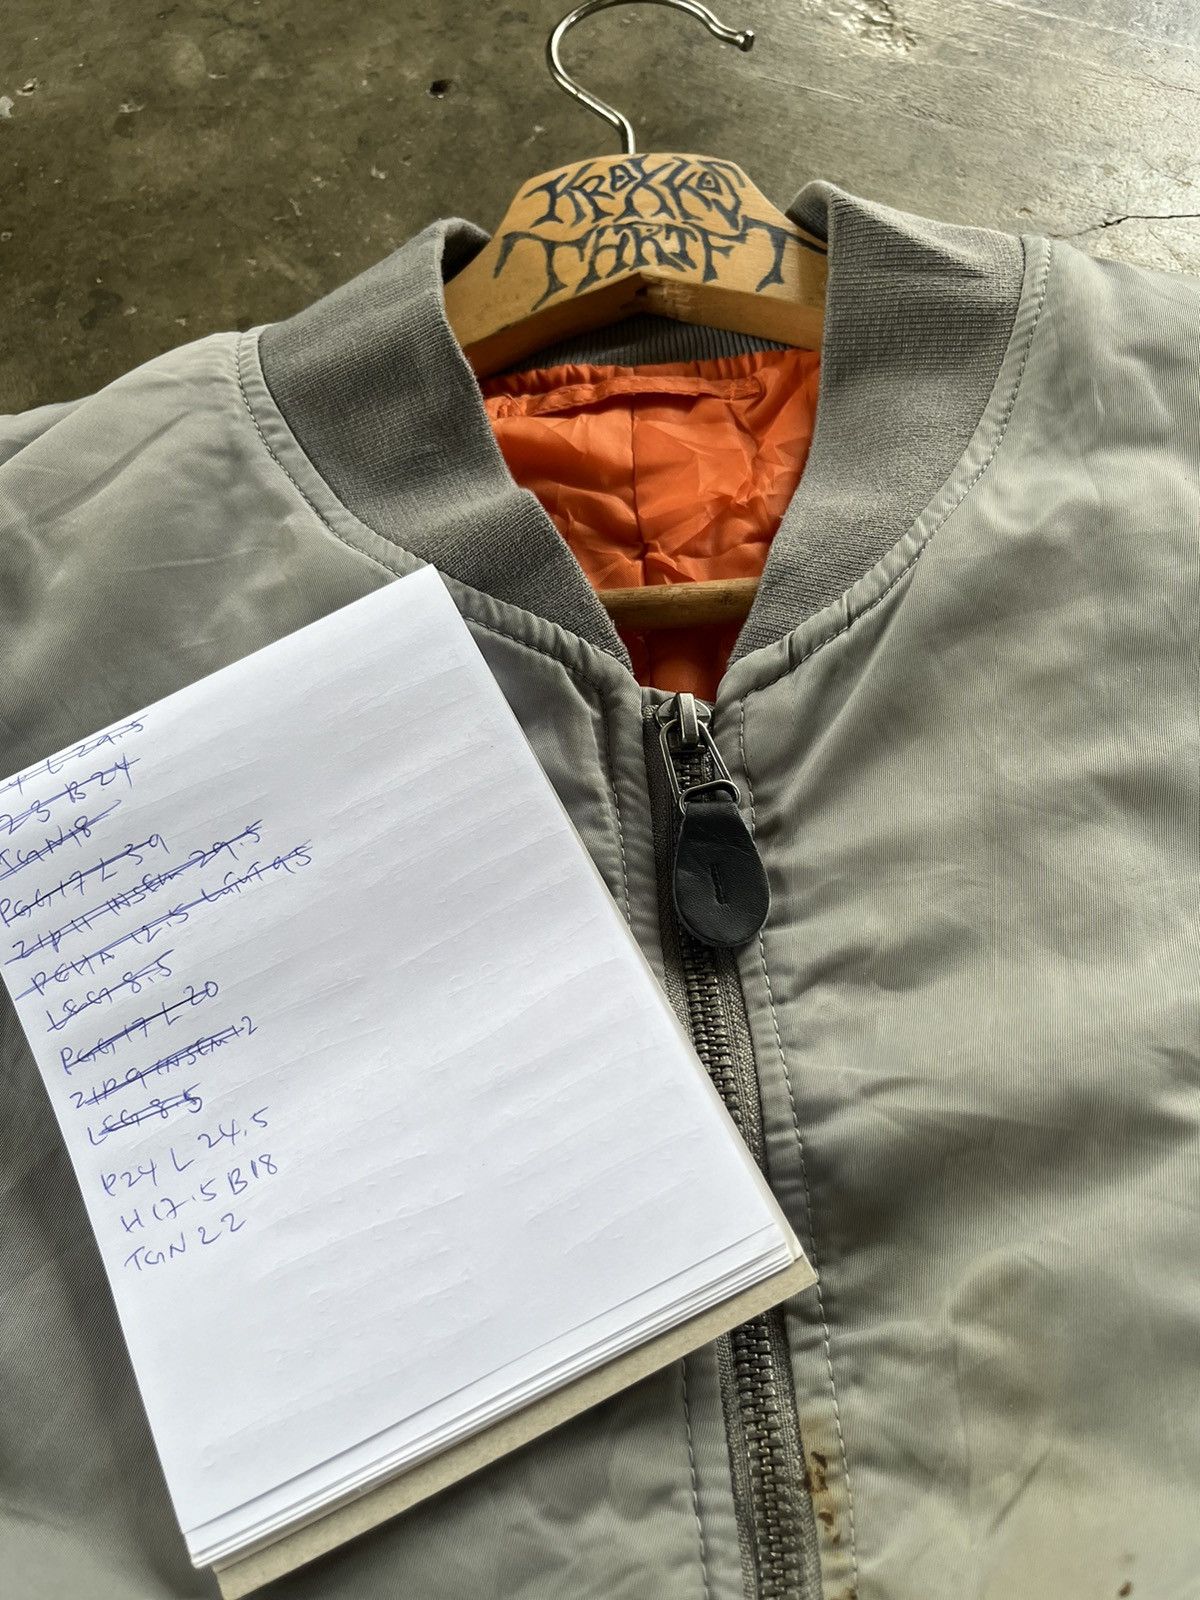 KROKKOS
THRIFT
4 L 29.5
23 B 24
TGN 18
PGG 17 L 39
ZIP 11 INSEM 29.5
PEHA 12.5 LUTUT 9.5
LEG 8.5
PGG 17 L 20
ZIP 9 INSEM 12
LEG 8.5
P24 L 24.5
H 17.5 B18
TGN 22